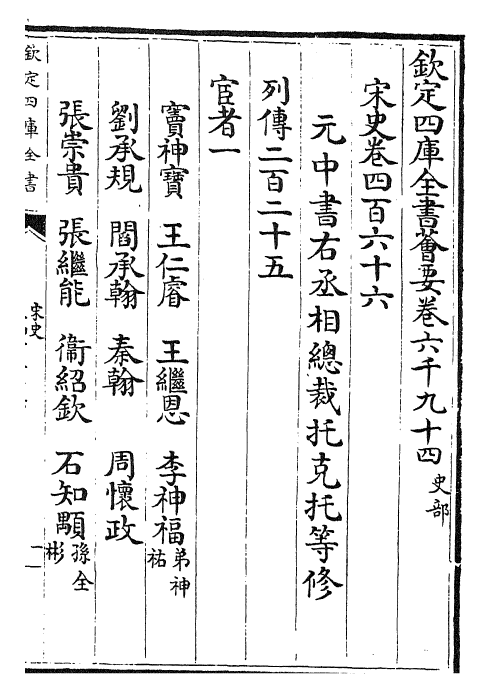 欽定四庫全書薈要卷六千九十四 史部
宋史卷四百六十六
元中書右丞相總裁托克托等修
列傳二百二十五
宦者一
竇神寶 王仁睿 王繼恩 李神福 弟神祐
劉承規 閻承翰 秦翰 周懷政
張崇貴 張繼能 衞紹欽 石知顒 孫全彬
欽定四庫全書 宋史 一